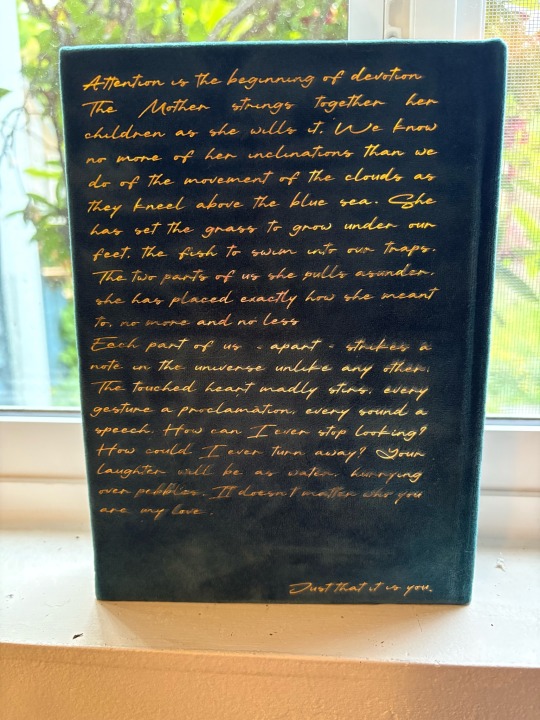 Attention is the beginning of devotion
The Mother strings together her
children as she wills it. We know
no more of her inclinations than we
do of the movement of the clouds as
they kneel above the blue sea. She
has set the grass to grow under our
feet, the fish to swim into our traps.
The two parts of us she pulls asunder,
she has placed exactly how she meant
to, no more and no less
Each part of us - apart - strikes a
note in the universe unlike any other.
The touched heart madly stirs, every
gesture a proclamation, every sound a
speech. How can I ever stop looking?
How could I ever turn away? Your
laughter will be as water, hurrying
over pebbles. It doesn't matter who you
are, my love.
Just that it is you.